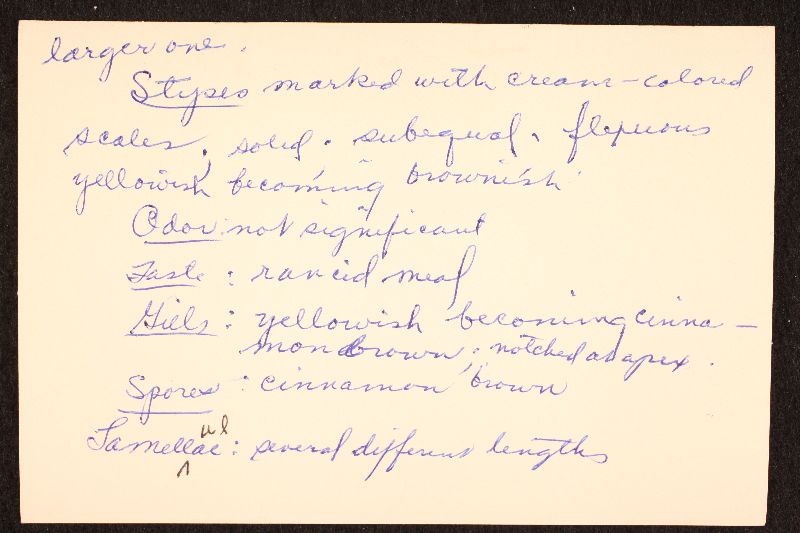 larger one.
Stypes marked with cream-colored
scales, solid. subequal, flexuous
yellowish becoming brownish
Odor: not significant
Taste: rancid meal
Gills: yellowish becoming cinna-
mon brown; notched at apex.
Spores: cinnamon brown
Lamellulae: several different lengths